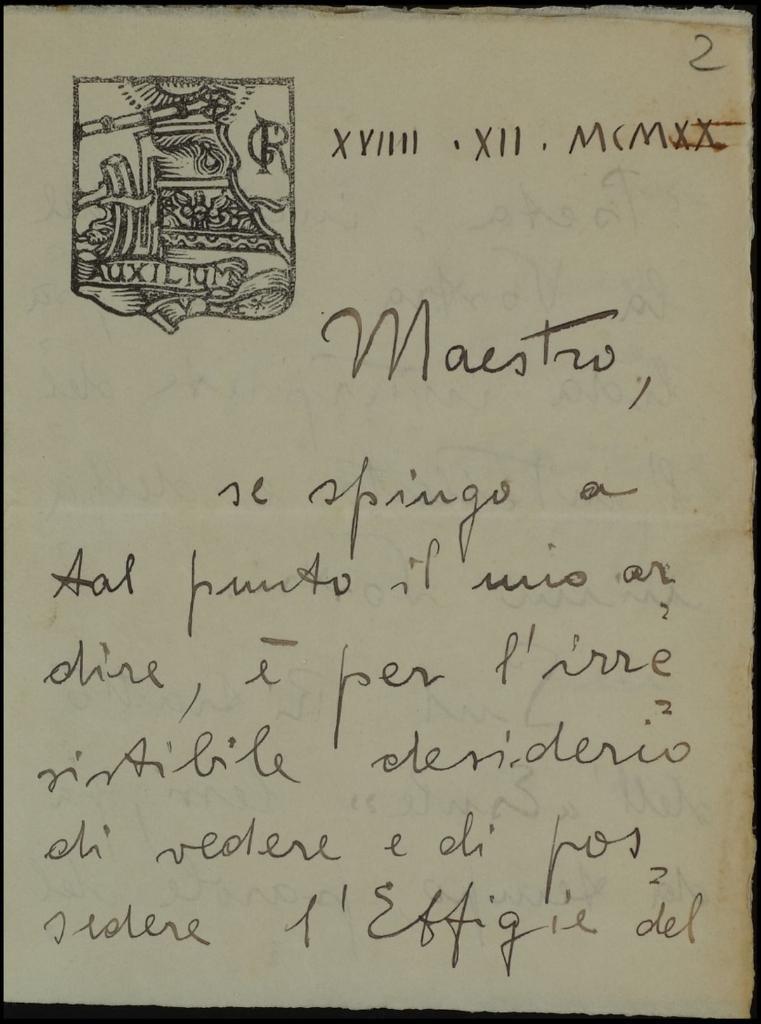 2
XVIIII . XII . MCMXX
AUXILIUM
Maestro,
se spingo a
tal punto il mio ar=
dire, è per l'irre=
sistibile desiderio
di vedere e di pos=
sedere l'Effigie del